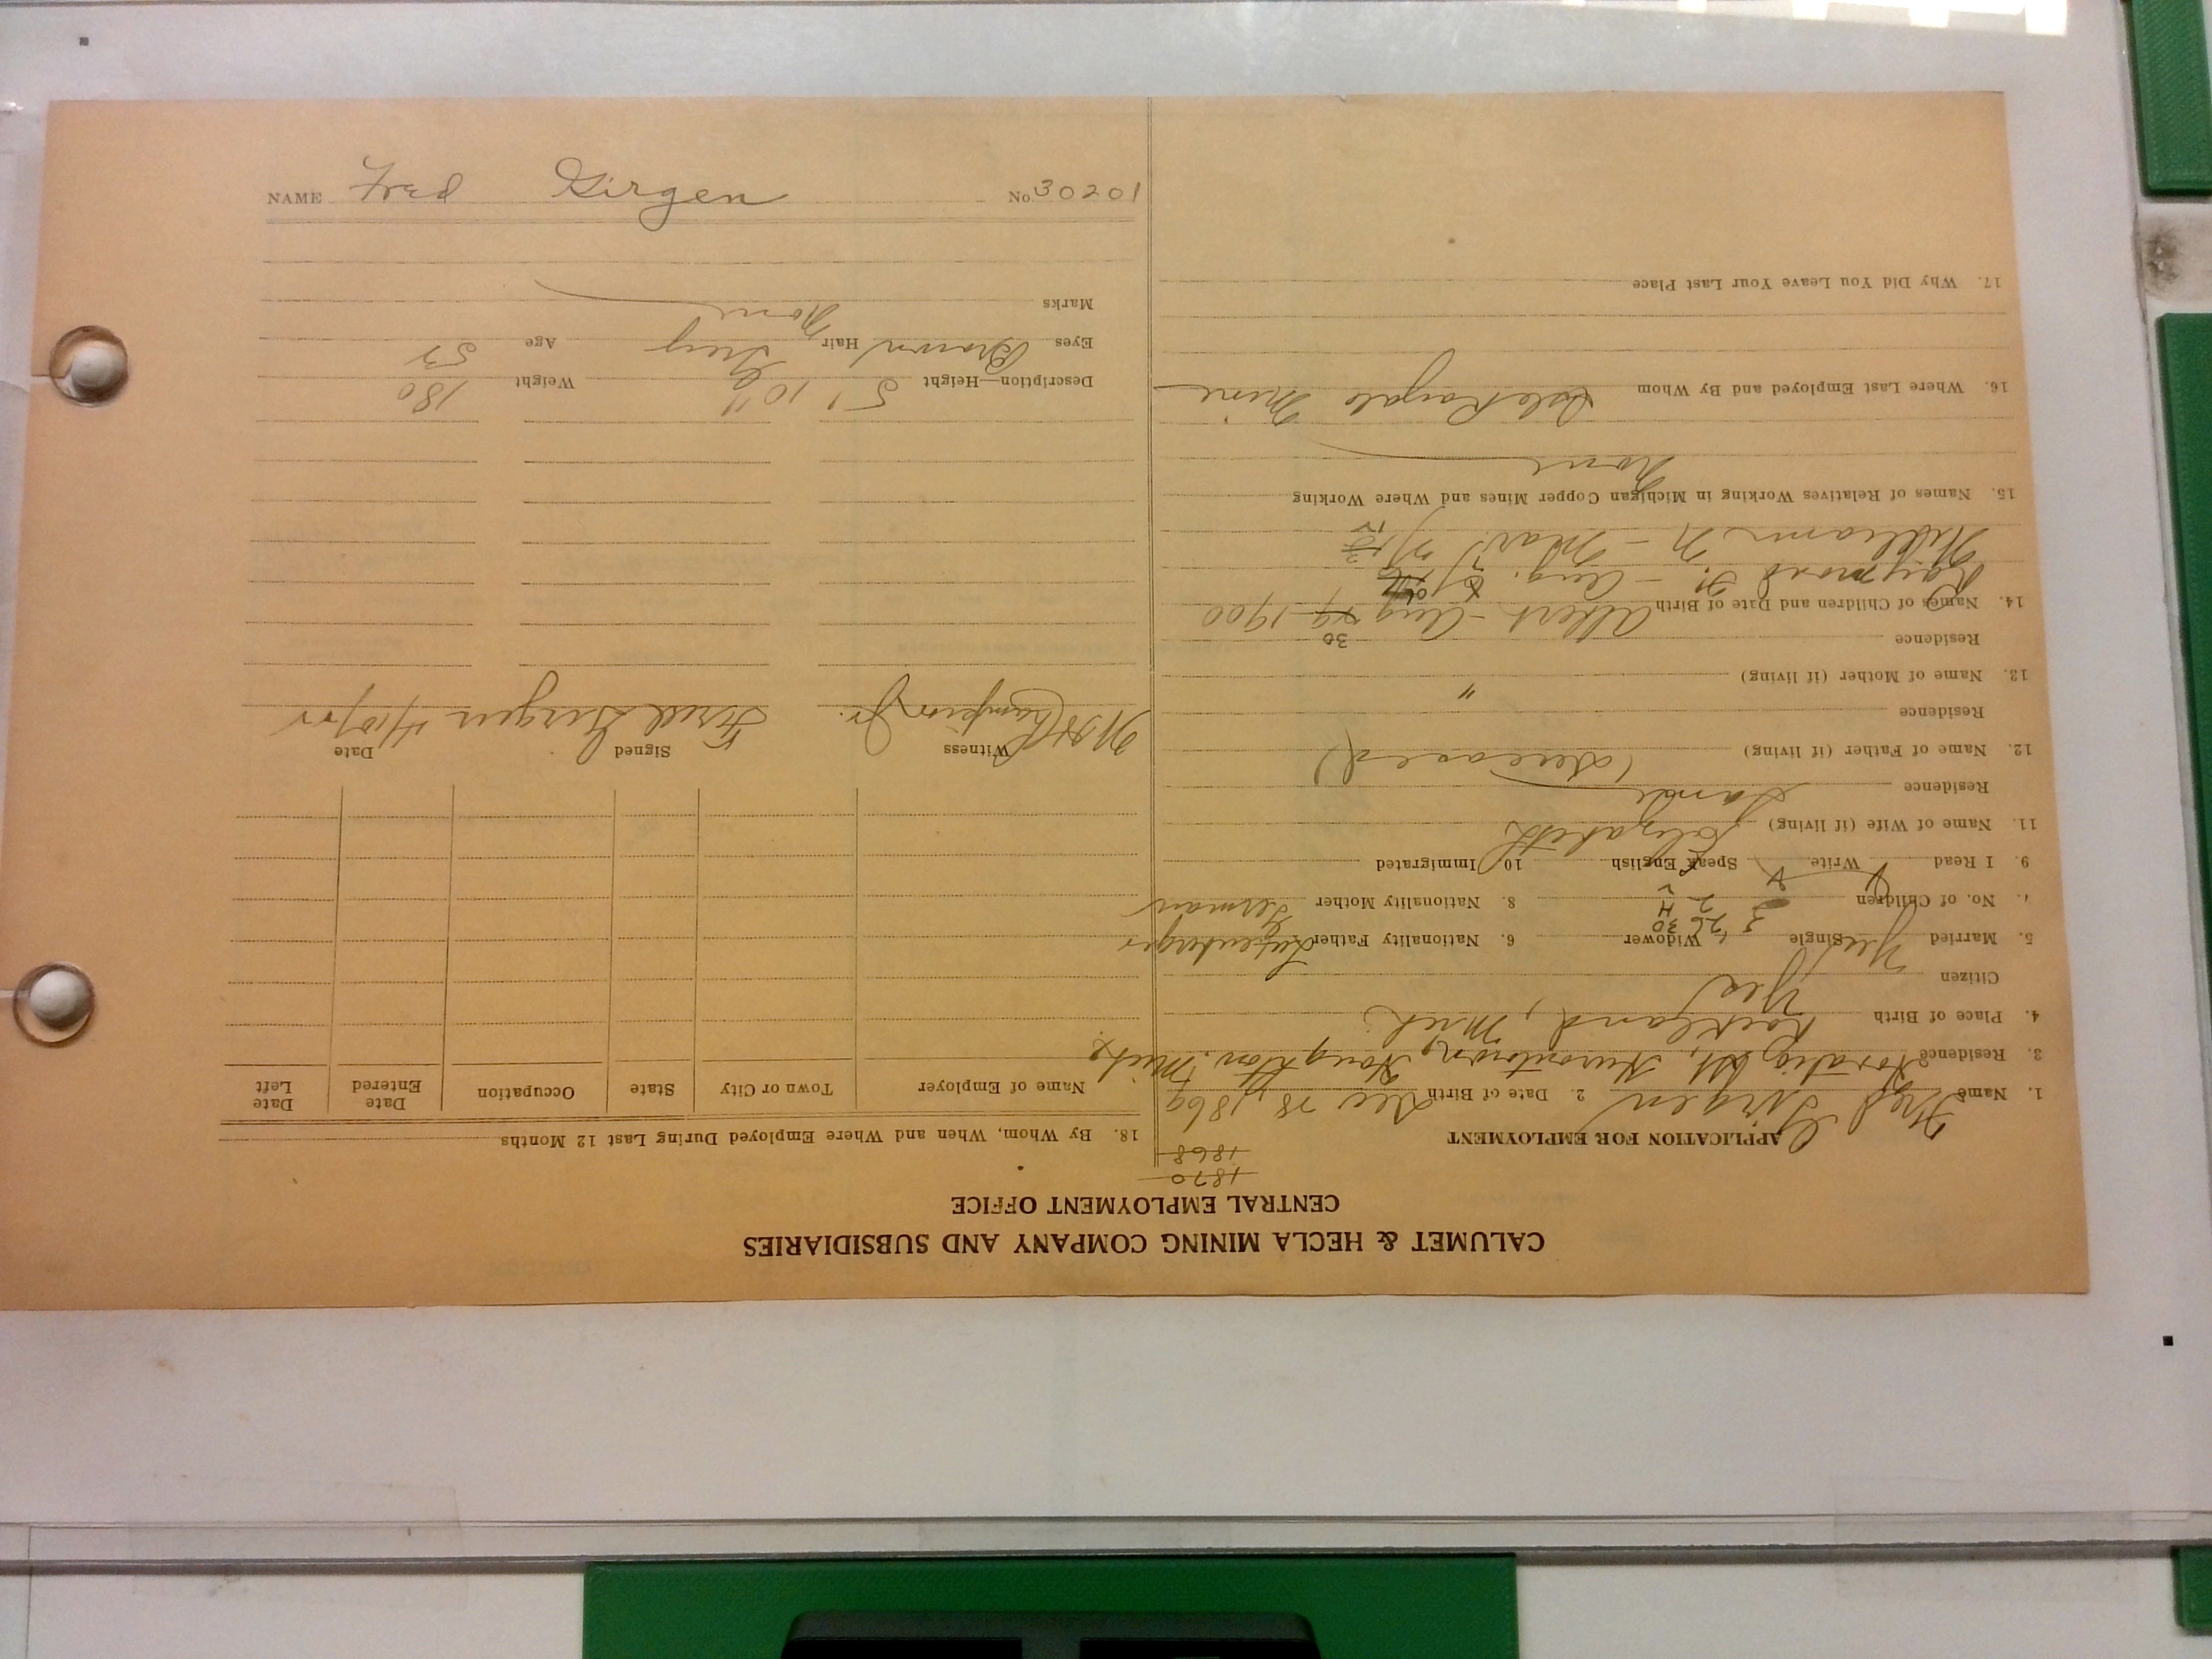 NAME Fred Girgen No. 30201
CALUMET & HECLA MINING COMPANY AND SUBSIDIARIES
CENTRAL EMPLOYMENT OFFICE
1870
1868
APPLICATION FOR EMPLOYMENT
1. Name Fred Girgen 2. Date of Birth Dec 28, 1869
3. Residence St, Hurontown, Houghton, Mich.
4. Place of Birth Rockland, Mich.
Citizen Yes
5. Married Yes Single Widower 6. Nationality Father
7. No. of Children 3 8. Nationality Mother German
9. I Read Write Speak English 10 Immigrated
11. Name of Wife (if living) Elizabeth
Residence Same
12. Name of Father (if living) (Deceased)
Residence
13. Name of Mother (if living) "
Residence
14. Names of Children and Date of Birth Albert - Aug 30 1900
Raymond - Aug.
William N - Mar.
15. Names of Relatives Working in Michigan Copper Mines and Where Working
None
16. Where Last Employed and By Whom Isle Royale Mine
17. Why Did You Leave Your Last Place
18. By Whom, When and Where Employed During Last 12 Months
Name of Employer Town or City State Occupation Date Entered Date Left
Witness Signed Date
Champion Jr. Fred Girgen 4/10/22
Description—Height 5' 10" Weight 180
Eyes Brown Hair Grey Age 53
Marks None